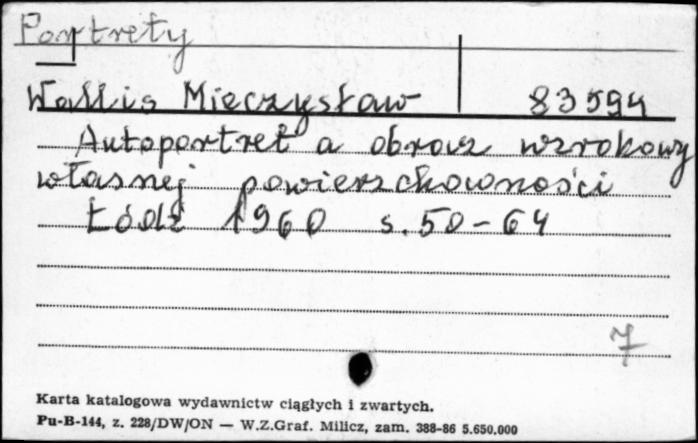 Portrety
Wallis Mieczysław 83594
Autoportret a obraz wzrokowy
własnej powierzchowności
Łódź 1960 s. 50-64
7
Karta katalogowa wydawnictw ciągłych i zwartych.
Pu-B-144, z. 228/DW/ON — W.Z.Graf. Milicz, zam. 388-86 5.650.000